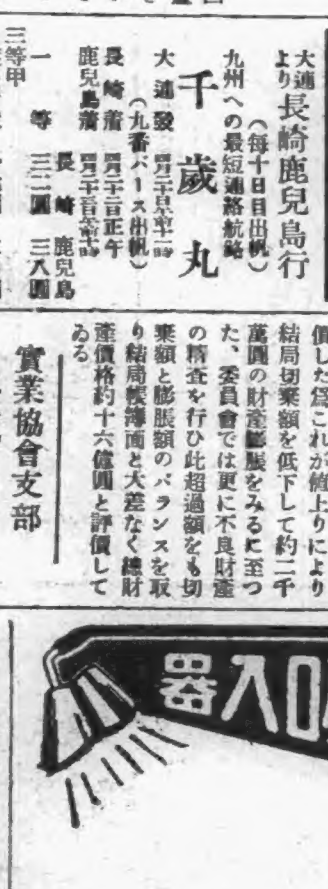 大連
より長崎鹿兒島行
(每十日目出帆)
九州への最短連絡航路
千歲丸
大連發
(九番バース出帆)
長崎着 正午
鹿兒島着
長崎 鹿兒島
一等 三二圓 三八圓
三等甲
價した爲これが値上りにより
結局切棄額を低下して約二千
萬圓の財產膨脹をみるに至つ
た、委員會では更に不良財產
の精査を行ひ此超過額をも切
棄額と膨脹額のバランスを取
り結局帳簿面と大差なく總財
產價格約十六億圓と評價して
ゐる
實業協會支部
器入